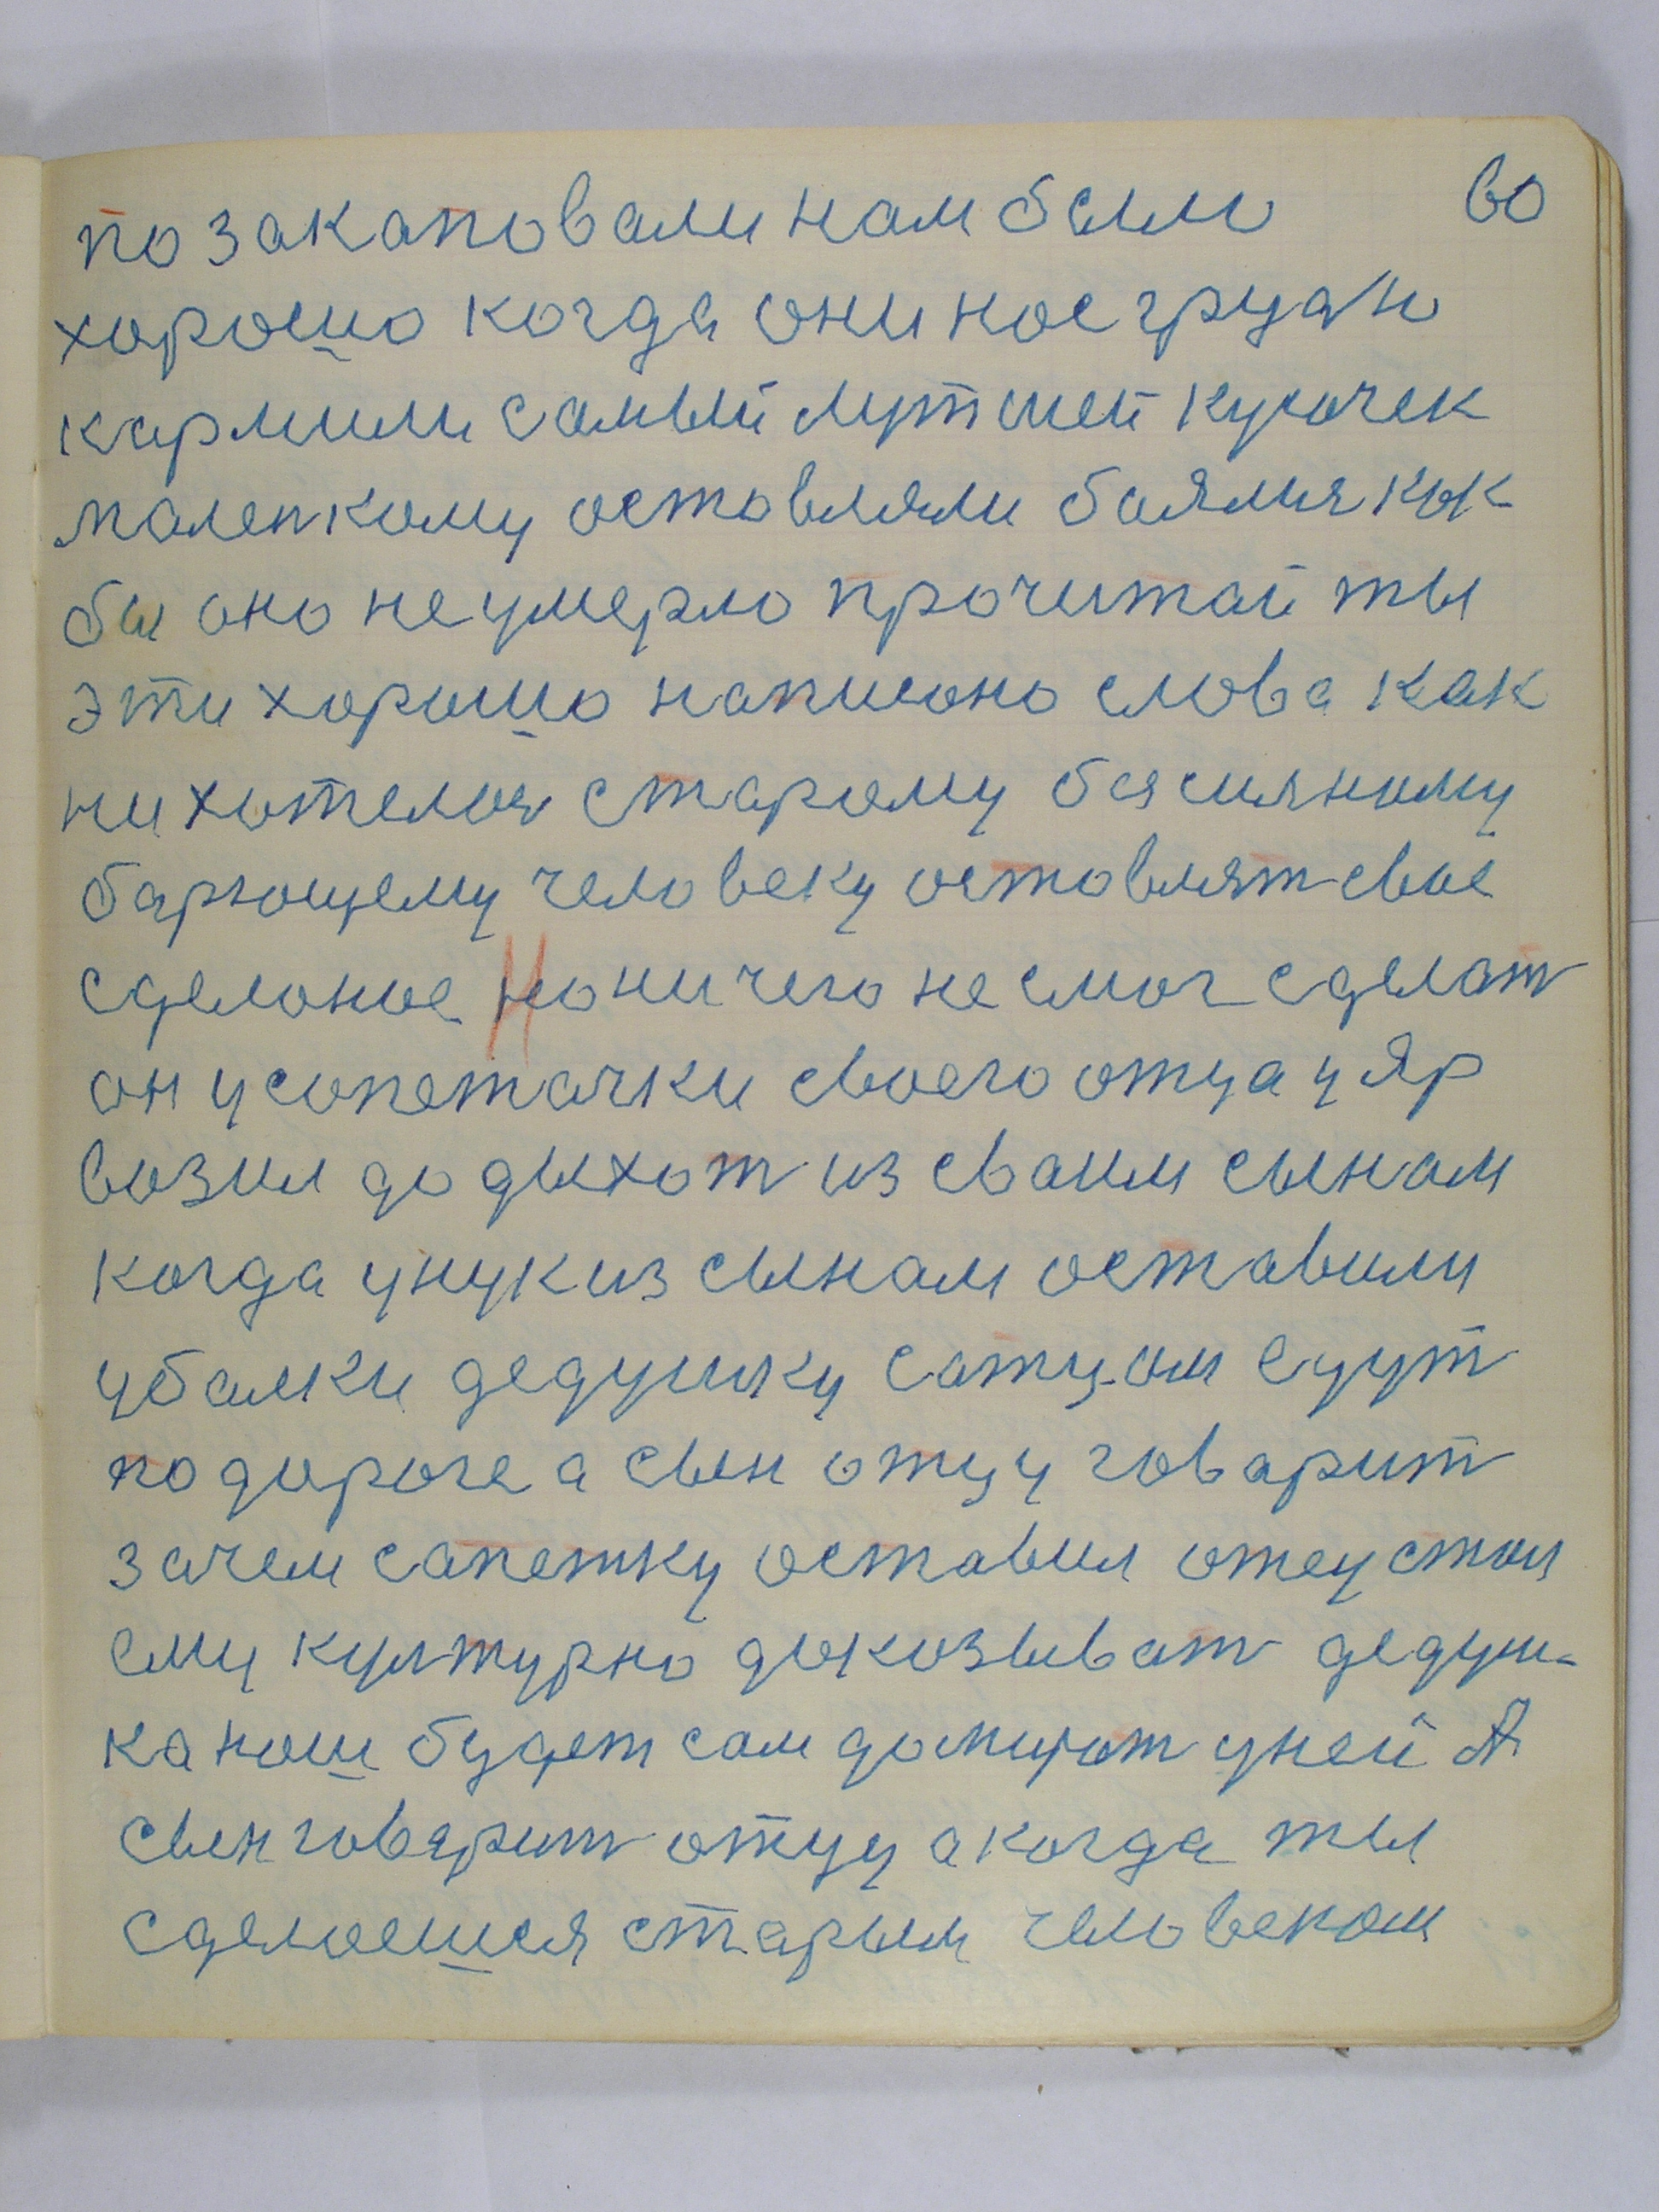 60
по закаповали нам было
хорошо когда они нас грудю
кармили самый лутшей кусочек
маленкому оставляли баялися как
бы оно не умерло прочитай ты
эти хорошо написано слова как
ни хотелося старому бясилному
барющему человеку оставлят свое
сделоное Но ничего не смог сделат
он у сопетачки своего отца у Яр
возил додыхат из сваим сынам
когда унук из сынам оставили
убалки дедушку сатцом едут
по дороге а сын отцу говарит
зачем сапетку оставил отец стал
ему културно доказыват дедуш-
ка наш будет сам домират у ней А
сын говарит отцу а когда ты
сделоешся старым человеком